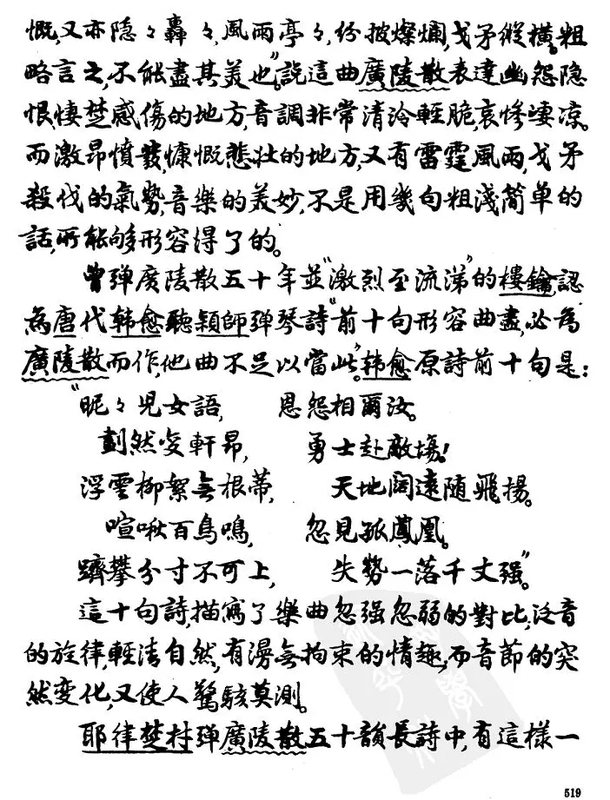 慨,又亦隐々轟々,風雨亭々,纷披燦爛,戈矛縱橫。粗
略言之,不能盡其美也"。說這曲廣陵散表達幽怨隐
恨,悽楚感傷的地方,音調非常清泠輕脆,哀惨凄凉。
而激昂憤發,慷慨悲壮的地方,又有雷霆風雨,戈矛
殺伐的氣勢,音樂的美妙,不是用幾句粗淺简单的
話,所能够形容得了的。
曾弹廣陵散五十年並"激烈至流涕"的樓鑰,認
為唐代韩愈聽穎師弹琴詩"前十句形容曲盡,必為
廣陵散而作,他曲不足以當此"。韩愈原詩前十句是:
"昵々兒女語, 恩怨相爾汝。
劃然变軒昂, 勇士赴敵場!
浮雲柳絮無根蒂, 天地闊遠随飛揚。
喧啾百鳥鳴, 忽見孤鳳凰。
躋攀分寸不可上, 失勢一落千丈强"。
這十句詩,描寫了樂曲忽强忽弱的對比,泛音
的旋律,輕清自然,有漫無拘束的情趣,而音節的突
然变化,又使人驚駭莫測。
耶律楚材弹廣陵散五十韻長詩中,有這樣一
519